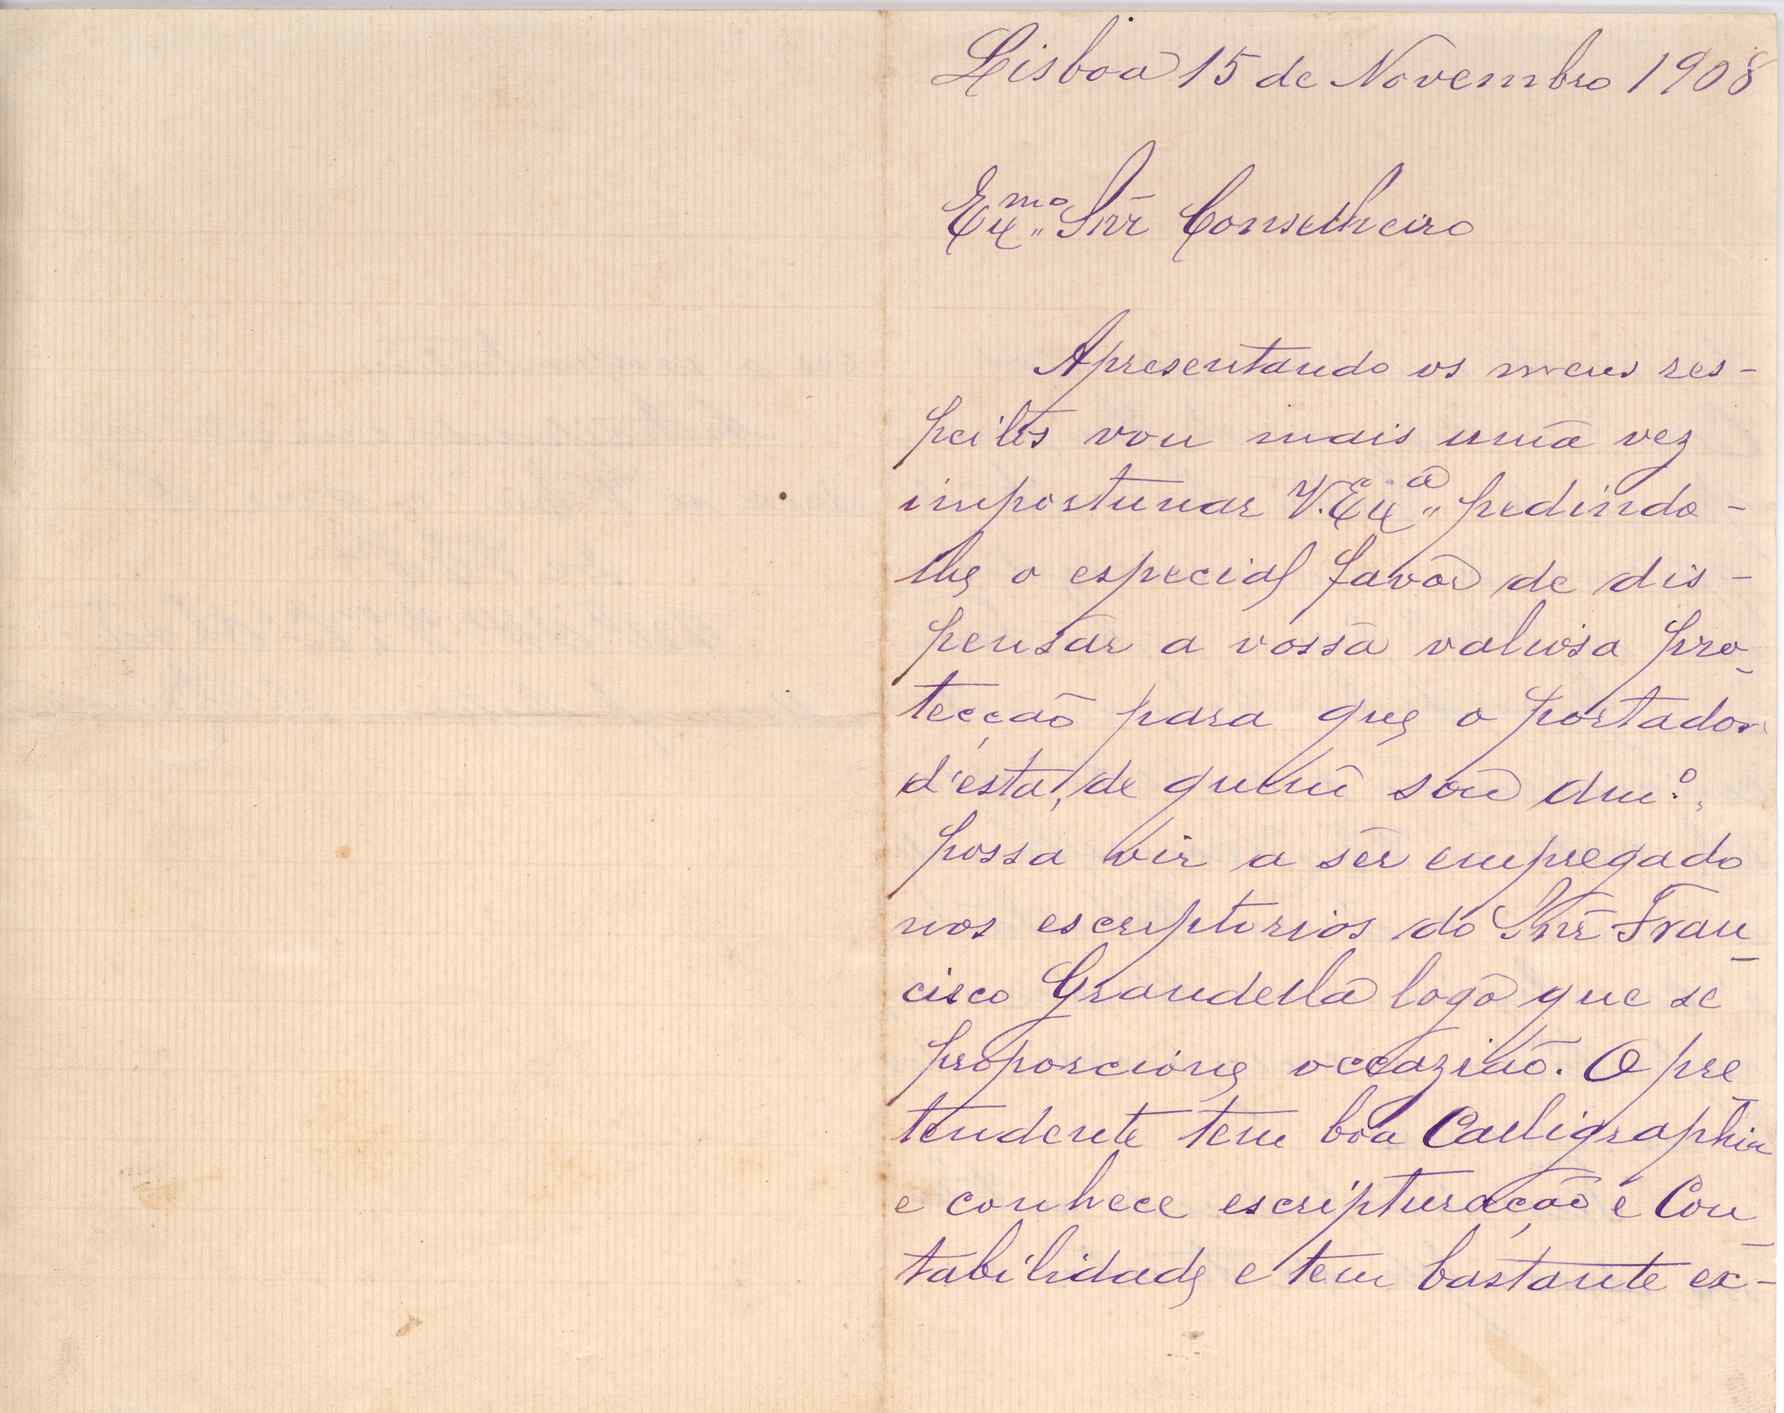 Lisboa 15 de Novembro 1908
Exmo. Snr Conselheiro
Apresentando os meus res-
peitos vou mais uma vez
importunar V. Exa. pedindo-
lhe o especial favor de dis-
pensar a vossa valiosa pro-
tecção para que o portador
d'esta, de quem sou amo.,
possa vir a ser empregado
nos escriptorios do Snr Fran-
cisco Grandella logo que se
proporcione occazião. O pre-
tendente tem boa Calligraphia
e conhece escripturação e Con-
tabilidade e tem bastante ex-